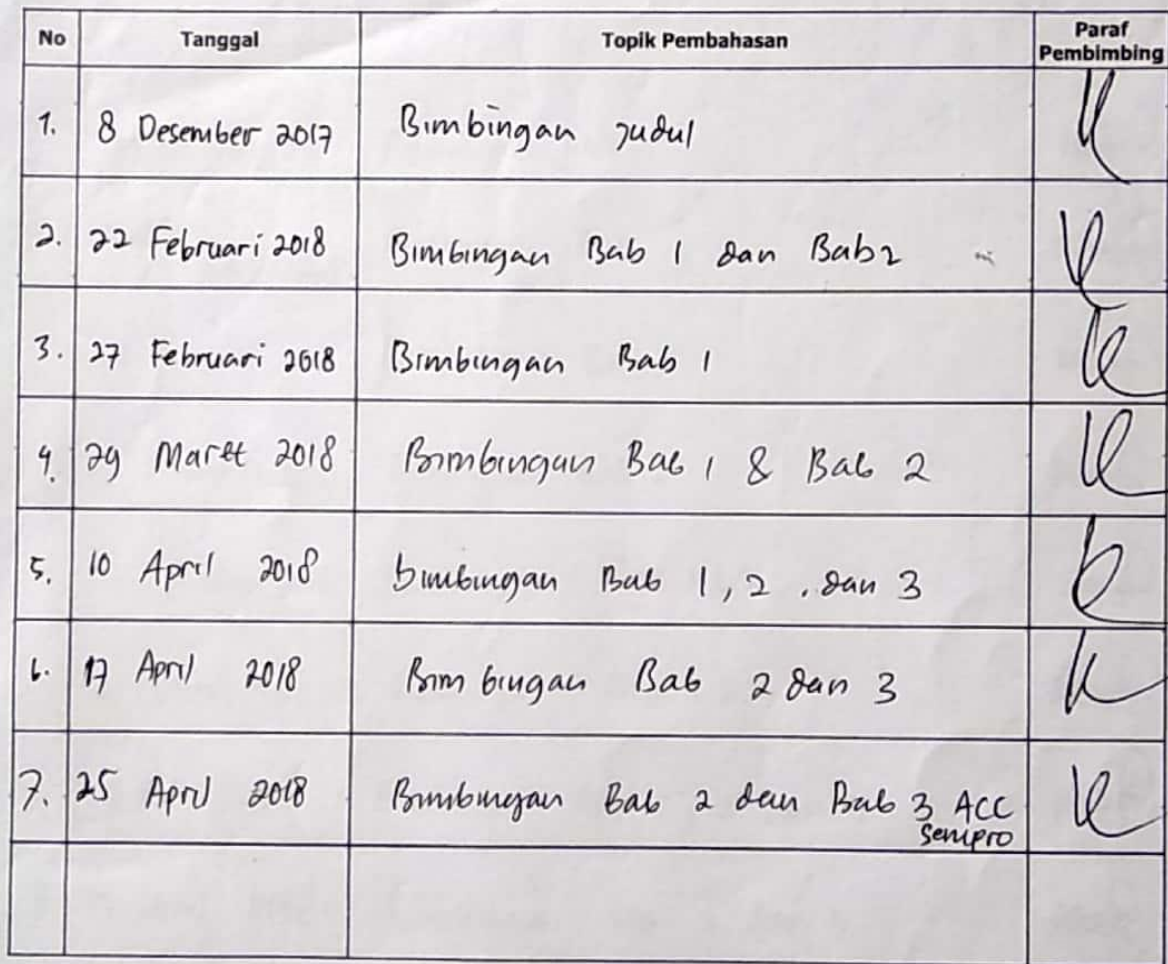 No Tanggal Topik Pembahasan Paraf
Pembimbing
1. 8 Desember 2017 Bimbingan Judul
2. 22 Februari 2018 Bimbingan Bab 1 dan Bab 2
3. 27 Februari 2018 Bimbingan Bab 1
4. 29 Maret 2018 Bimbingan Bab 1 & Bab 2
5. 10 April 2018 bimbingan Bab 1, 2, dan 3
6. 17 April 2018 Bimbingan Bab 2 dan 3
7. 25 April 2018 Bimbingan Bab 2 dan Bab 3 ACC
sempro